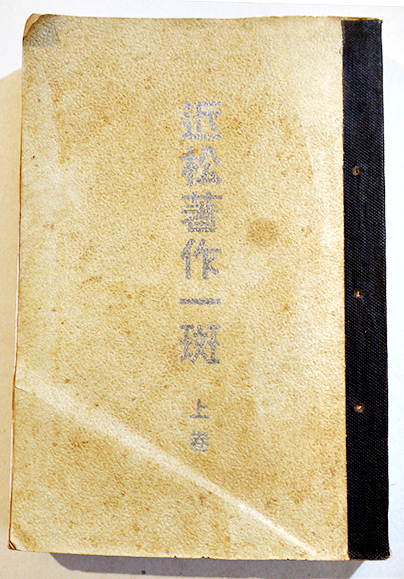 近松著作一斑
上卷